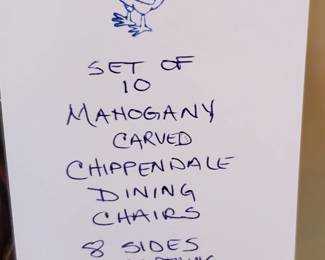 SET OF
10
MAHOGANY
CARVED
CHIPPENDALE
DINING
CHAIRS
8 SIDES